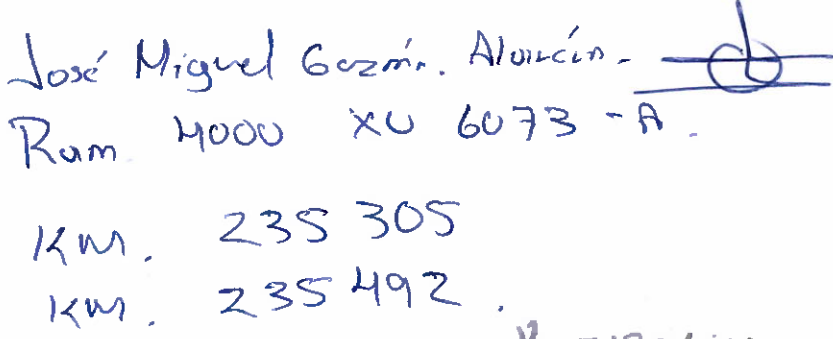 José Miguel Guzmán. Alarcón.
Ram 4000 XU 6073 - A.
KM. 235 305
KM. 235 492.